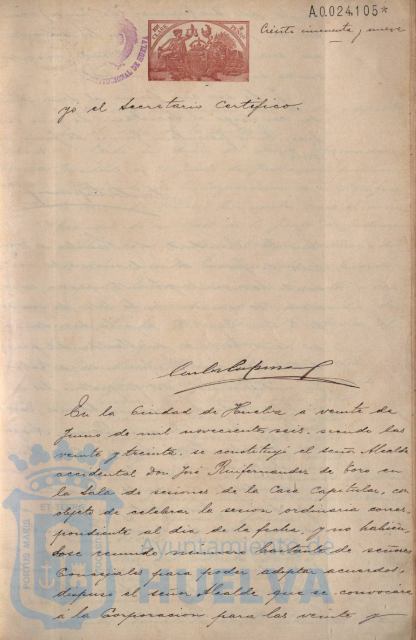 A.0.024,105*
Ciento cincuenta y nueve
CONSTITUCIONAL DE HUELVA
yo el Secretario Certifico.
En la Ciudad de Huelva a veinte de
Junio de mil novecientos seis, siendo las
veinte y treinta, se constituyó el señor Alcalde
accidental Don José Ruifernandez de Toro en
la Sala de sesiones de la Casa Capitular, con
objeto de celebrar la sesion ordinaria corres-
pondiente al dia de la fecha, y no habien-
dose reunido número bastante de señores
Concejales para poder adoptar acuerdos,
dispuso el señor Alcalde que se convocara
á la Corporacion para las veinte y
PORTUS MARIS
Ayuntamiento de
HUELVA